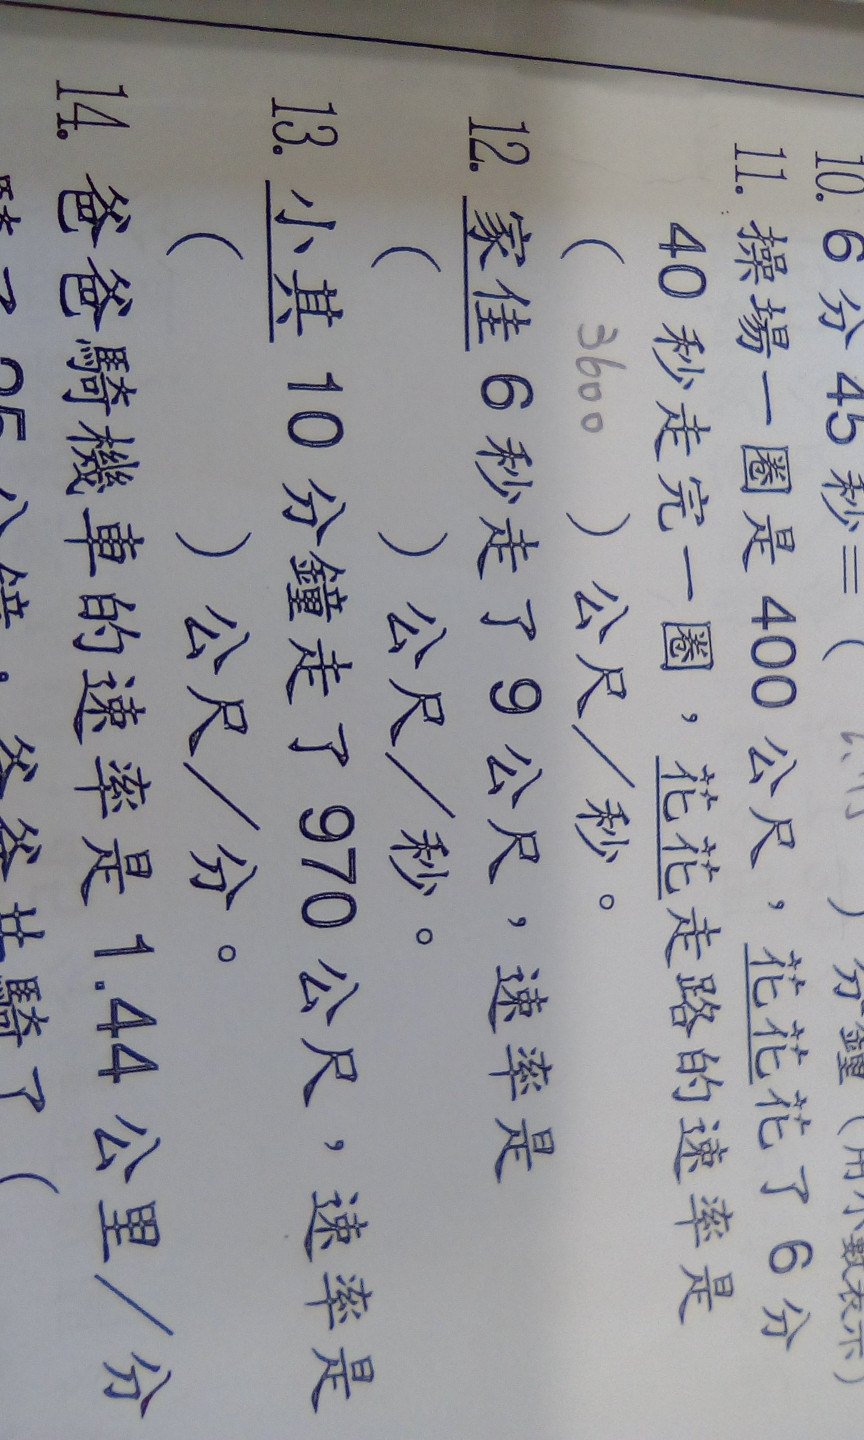 10. 6 分 45 秒＝（ ）分鐘（用小數表示）
11. 操場一圈是 400 公尺，花花花了 6 分
40 秒走完一圈，花花走路的速率是
（ 3600 ）公尺／秒。
12. 家佳 6 秒走了 9 公尺，速率是
（ ）公尺／秒。
13. 小其 10 分鐘走了 970 公尺，速率是
（ ）公尺／分。
14. 爸爸騎機車的速率是 1.44 公里／分
騎了 25 分鐘，爸爸共騎了（